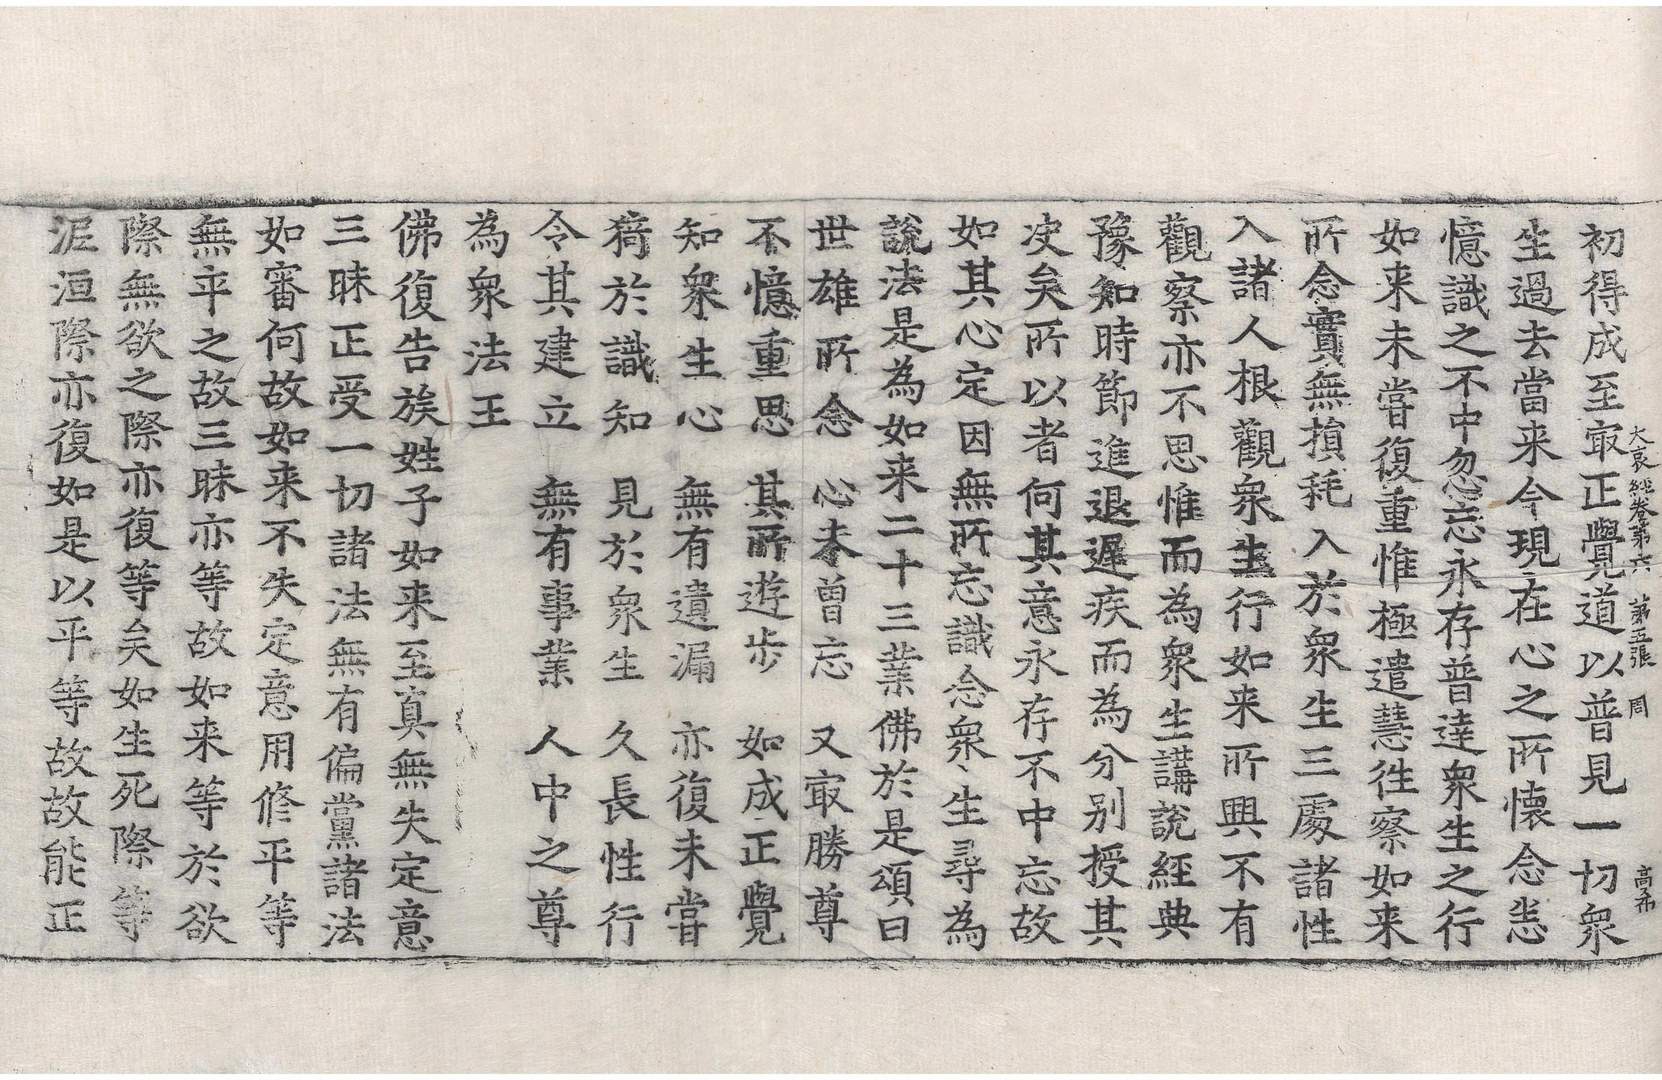 大哀經卷第六　第五張　周　高希
初得成至㝡正覺道以普見一切衆
生過去當来今現在心之所懷念悉
憶識之不中忽忘永存普達衆生之行
如来未甞復重惟極遣慧徃察如来
所念實無損耗入於衆生三處諸性
入諸人根觀衆生行如来所興不有
觀察亦不思惟而為衆生講說經典
豫知時節進退遲疾而為分别授其
决矣所以者何其意永存不中忘故
如其心定因無所忘識念衆生尋為
說法是為如来二十三業佛於是頌曰
世雄所念　心未曾忘　又㝡勝尊
不憶重思　其所遊步　如成正覺
知衆生心　無有遺漏　亦復未甞
猗於識知　見於衆生　久長性行
令其建立　無有事業　人中之尊
為衆法王
佛復告族姓子如来至真無失定意
三昧正受一切諸法無有偏黨諸法
如審何故如来不失定意用修平等
無平之故三昧亦等故如来等於欲
際無欲之際亦復等矣如生死際等
泥洹際亦復如是以平等故故能正